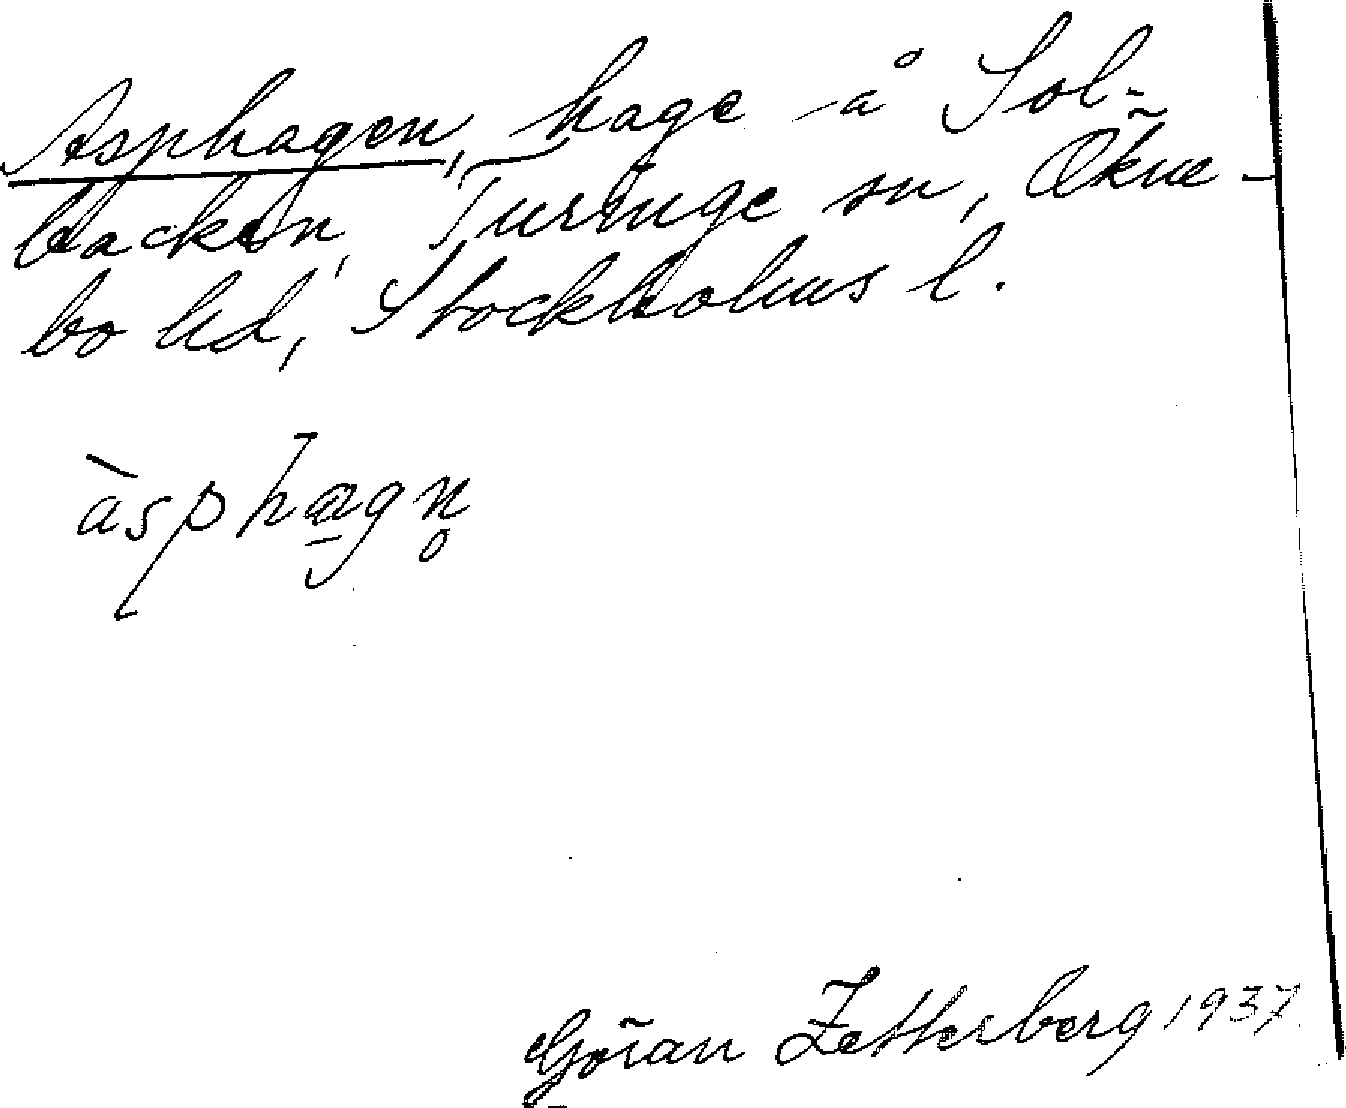 Asphagen, hage å Sol-
backen, Turinge sn, Ökne-
bo hd, Stockholms l.
àsphagn̥
Göran Zetterberg 1937